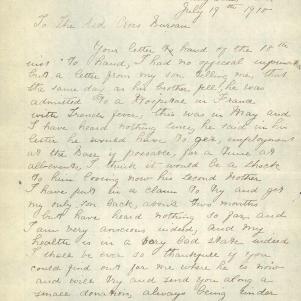 July 19th 191
To The Red Cross Bureau
Your letter to hand of the 18th
inst To hand, I had no official
but a letter from my son telling me, that
the same day as his brother fell, he was
admitted To a Hospital in France
with Trench fever, this was in May and
I have heard nothing since, he said in his
letter he would have to get, employment
at the Base if possible for a time at
I think it would be a shock
to him loosing now his second Brother
I have put in a claim to try and get
my only son back, about Two months
but have heard nothing so far and
I am very anxious indeed, and my
health is in a very bad state indeed
I shall be ever so thankfull if you
could find out for me where he is now
and will try and send you along a
small donation, always being under